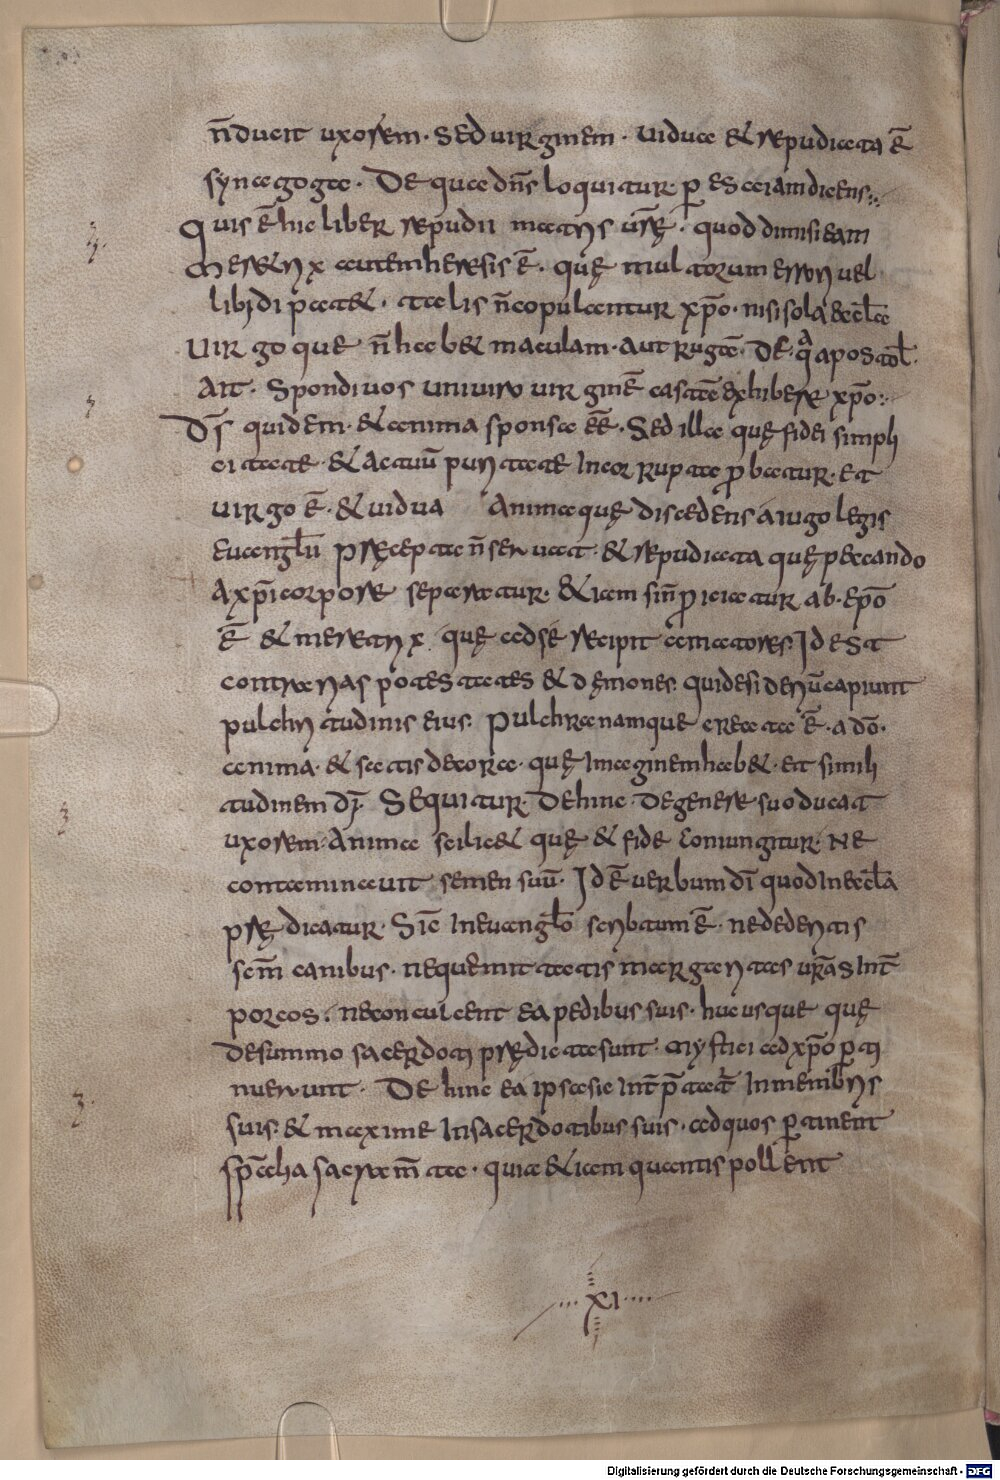 n̄ ducit uxorem · sed uirginem · uidua & repudiata ē
synagoga · De qua dn̄s loquitur p̄ esaiam dicens ·:·
Quis ē hic liber repudii matris ur̄ę · quod dimisi eam
Meretrix autem heresis ē · quę multorum errori uel
libidi patet · talis n̄ copulentur xp̄o · nisi sola eccl̄a
uirgo que n̄ habet maculam · aut rugā · De q̄a apostol̄
ait · Spondi uos uni uiro uirginē castā exhibere xp̄o ·:·
Dī quidem · & anima sponsa eē · Sed illa quę fidei simpli
citate · & actuū puritate incorrupta p̄batur · Et
uirgo ē · & uidua Anima quę discedens a iugo legis
euangl̄ii pręcepta n̄ seruat · & repudiata quę peccando
a xp̄i corpore separatur · & iam sin̄ p̄iciatur ab · ep̄o
ē & meretrix · quę ad se recipit amatores · Id est
contrarias potestates & dęmones · qui desidenū capiunt
pulchritudinis eius · Pulchra namque creata ē · a dō ·
anima · & satis decora · quę imaginem habet · et simili
tudinem dī · Sequitur · Dehinc · De genere suo ducat
uxorem · Animā scilicet quę & fide coniungitur · Ne
contaminauit semen suū · Id ē uerbum dī quod in eccl̄a
prędicatur · Sic̄ in euangl̄o scribtum ē · ne dederitis
scm̄ canibus · neque mittatis margaritas ur̄as int̄
porcos · ne conculcent ea pedibus suis · hucusque quę
de summo sacerdoti prędicta sunt · mystici ad xp̄o p̄ti
nuerunt · De hinc ea ipsa sic int̄p̄tat̄ in membris
suis · & maxime in sacerdotibus suis · ad quos p̄tinent
sp̄echa sacramta · quia etiam quantis pollent
XI
Digitalisierung gefördert durch die Deutsche Forschungsgemeinschaft - DFG